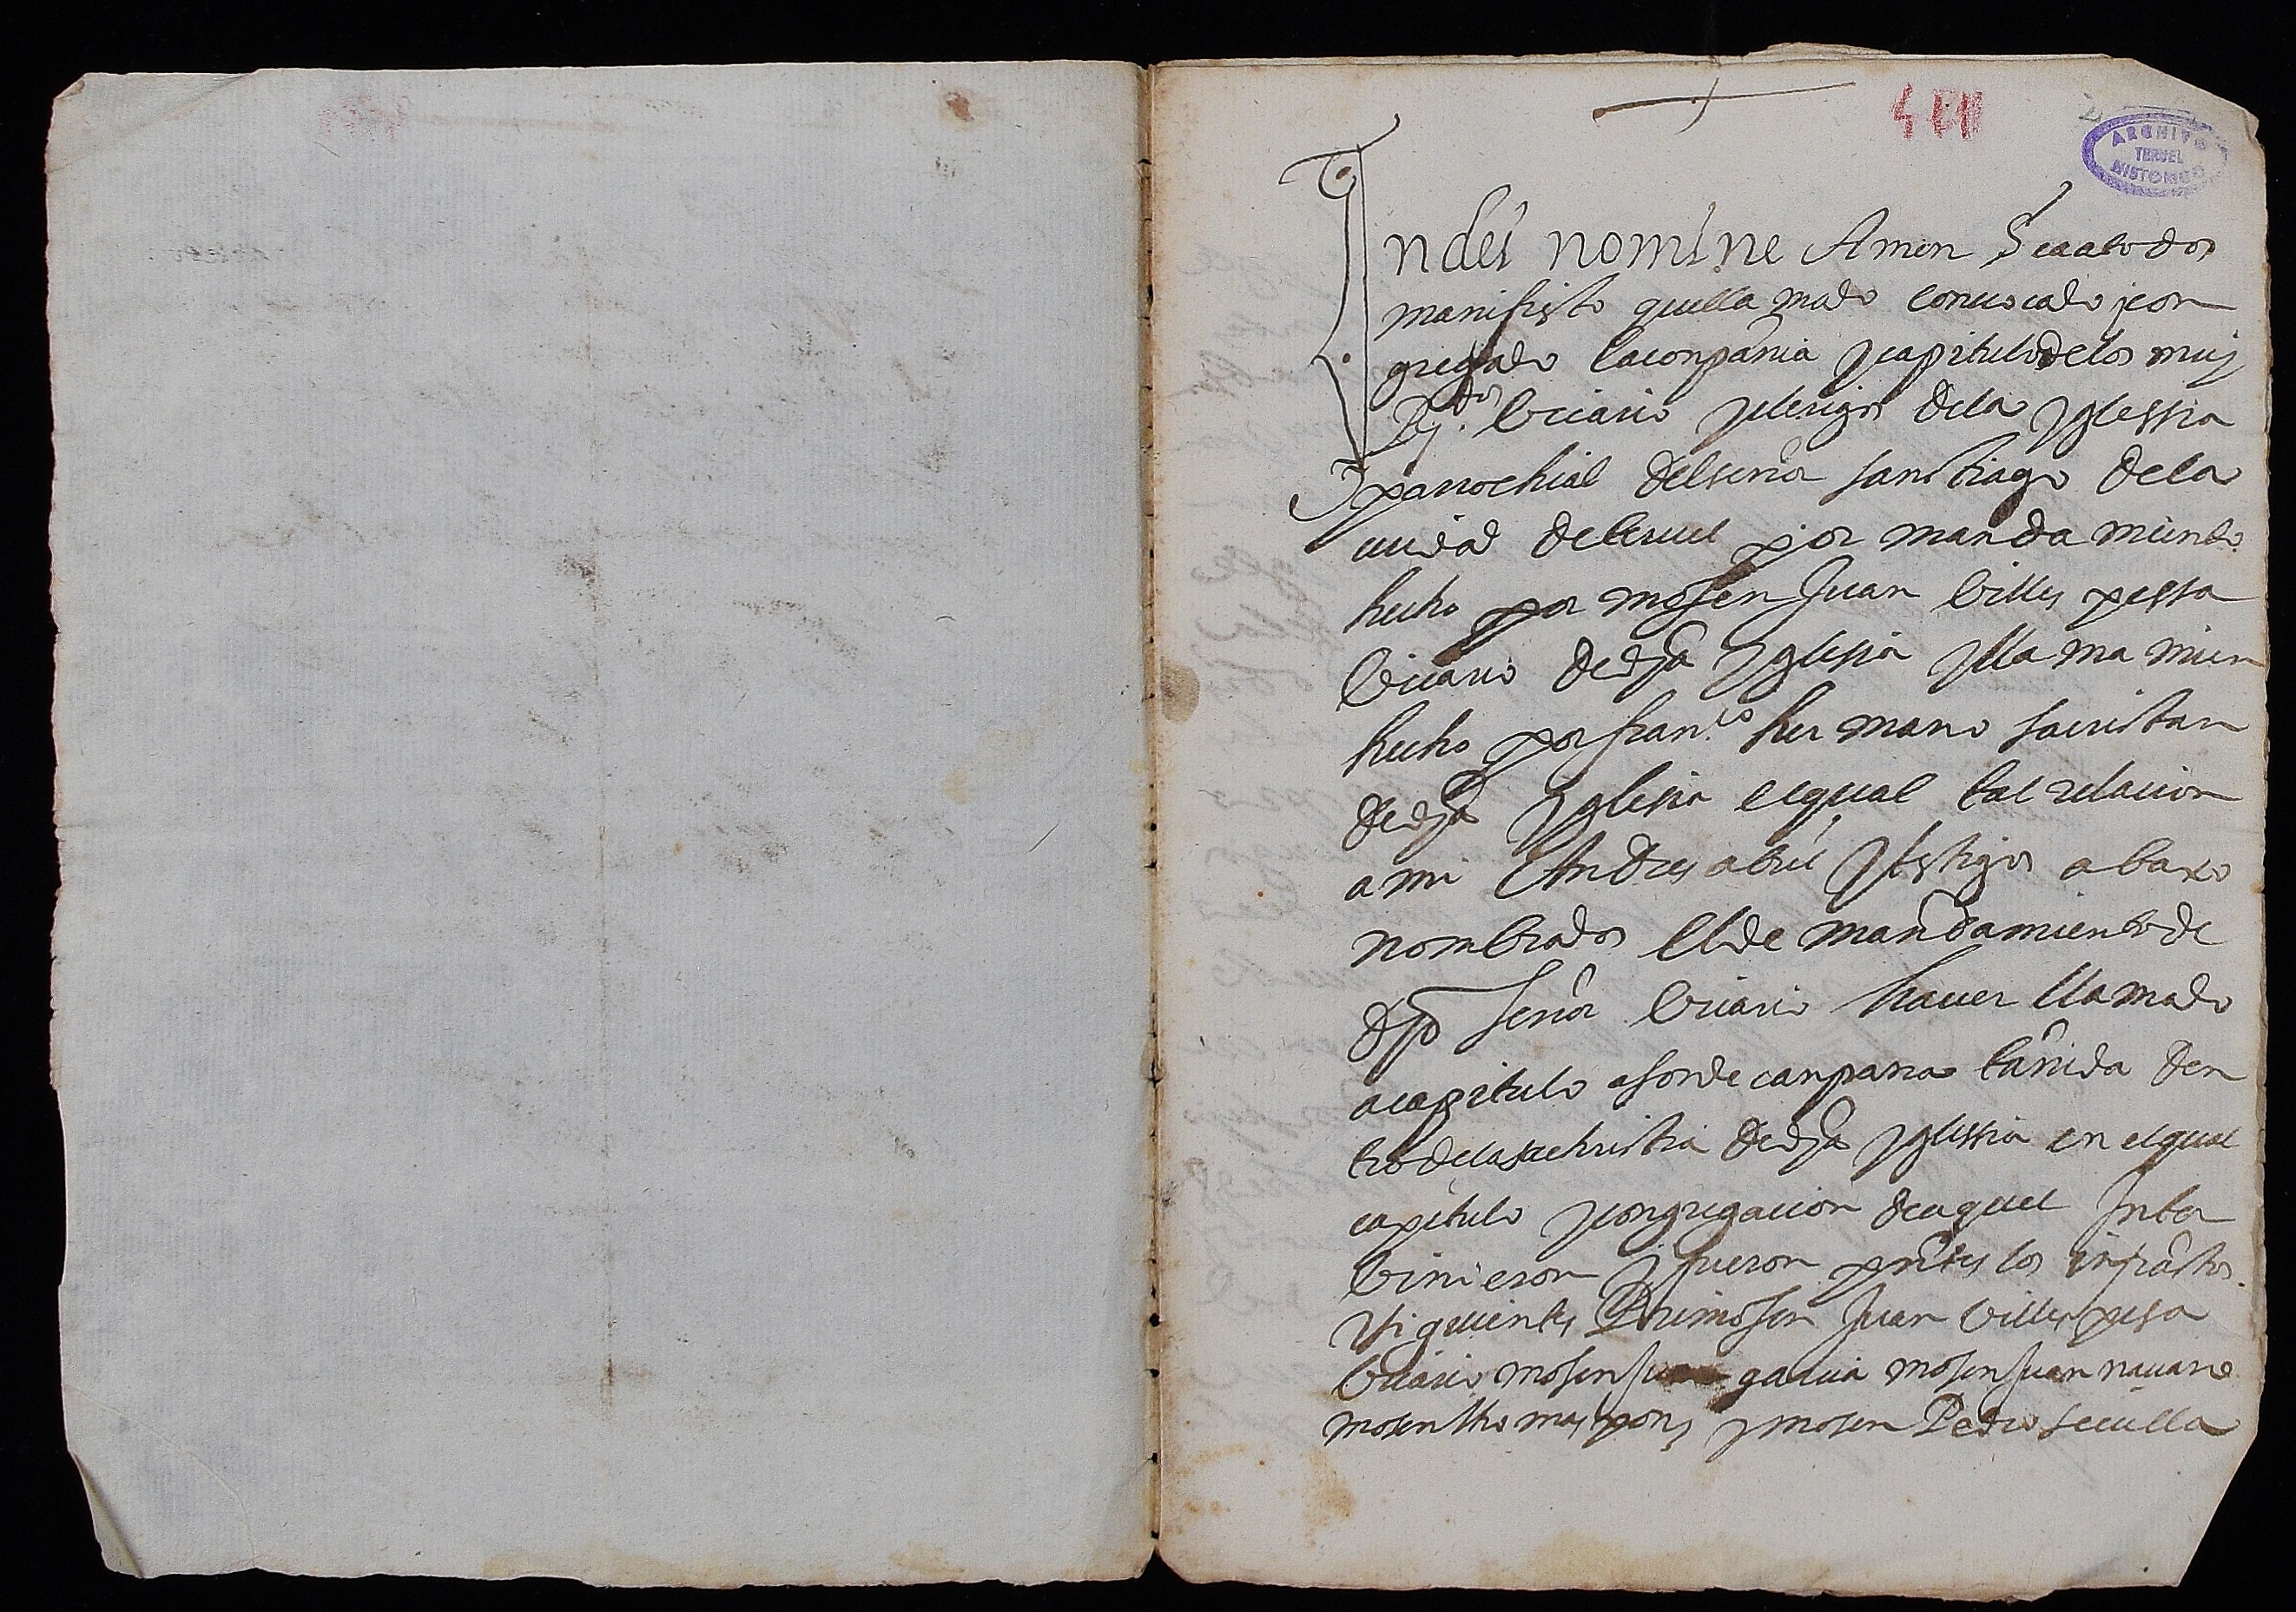 2
ARCHIVO
TERUEL
HISTORICO
In dei nomine Amen Sea a todos
manifiesto que llamado conuocado y con
gregado la conpañia y capitulo de los muy
Rdos. bicario y clerigos de la yglessia
parrochial del señor santiago de la
ciudad de teruel por mandamiento
hecho por mosen Juan billespessa
bicario de dha yglesia y llamamien
hecho por franco. hermano sacristan
de dha yglesia el qual tal relacion
a mi Andres abril y testigos abaxo
nombrados el de mandamiento de
dho señor bicario hauer llamado
a capitulo a son de canpana tañida den
tro de la sachristia de dha yglessia en el qual
capitulo y congregacion de aquel Inter
binieron y fueron pntes los infrasctos.
y siguientes Primo mosen Juan billespesa
bicario mosen Juan garcia mosen Juan nauarro
mosen thomas pons y mosen Pedro seuilla